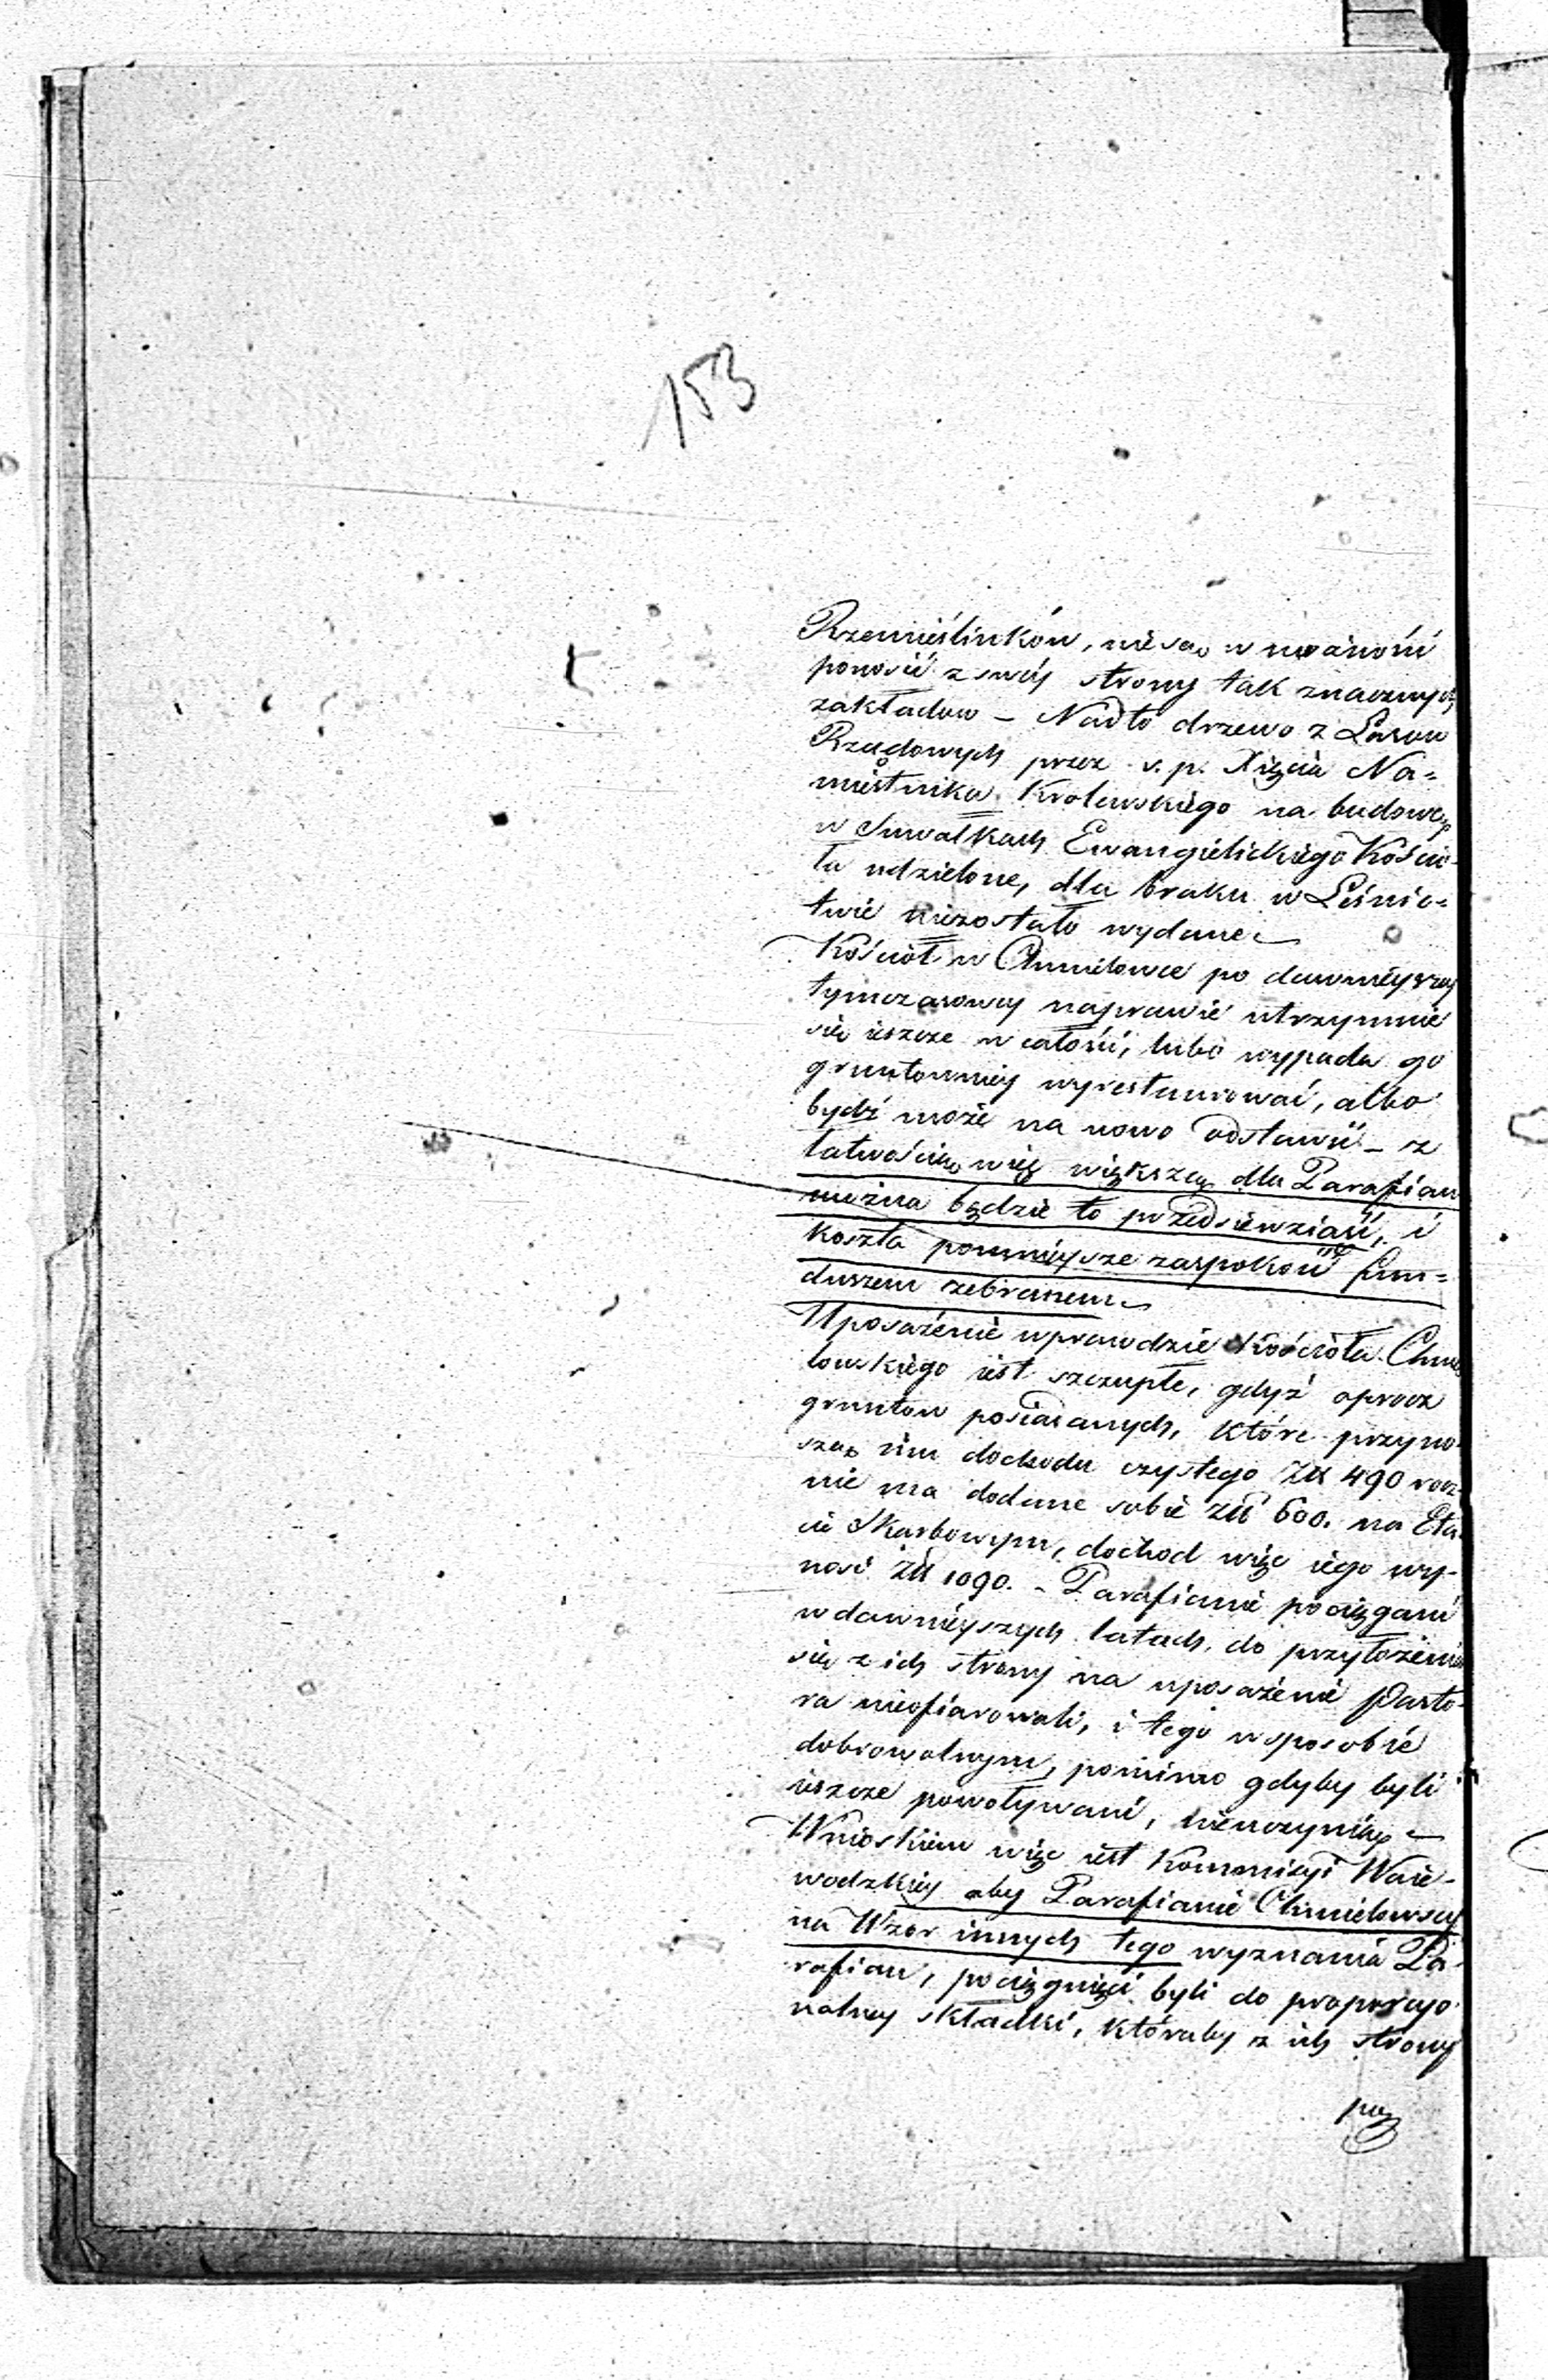 153
Rzemieślników, nie są w możności
ponosić z swéj strony tak znacznych
zakładow – Nadto drzewo z Lasow
Rządowych przez ś. p. Xięcia Na=
miestnika Krolewskiego na budowę
w Suwałkach Ewangielickiego Kościo-
ła udzielone, dla braku w Leśnic=
twie niezostało wydane. –
Kościół w Chmielowce po dawnieyszey
tymczasowey naprawie utrzymuie
się ieszcze w całości, lubo wypada go
gruntowniey wyrestaurować, albo
bydź może na nowo odstawić – z
łatwością więc większą dla Parafian
można będzie to przedsiewziąść, i
koszta pomnieysze zaspokoić fun=
duszem zebranem. –
Uposażenie wprawdzie Kościoła Chmie
lowskiego iest szczupłe, gdyż oprocz
gruntow posiadanych, które przyno-
szą im dochodu czystego Złł 490 rocz-
nie ma dodane sobie Złł 600. na Eta-
cie Skarbowym, dochod więc iego wy-
nosi Złł 1090. – Parafianie pociągani
w dawnieyszych latach, do przyłożenia
się z ich strony na uposażenie Pasto-
ra nieofiarowali, i tego w sposobie
dobrowolnym, pomimo gdyby byli
ieszcze powoływani, nieuczynią –
Wnioskiem więc iest Kommissyi Woie-
wodzkiey aby Parafianie Chmielowscy
na Wzor innych tego wyznania Pa-
rafian, pociągnięci byli do proporcyo-
nalney składki, któraby z ich strony